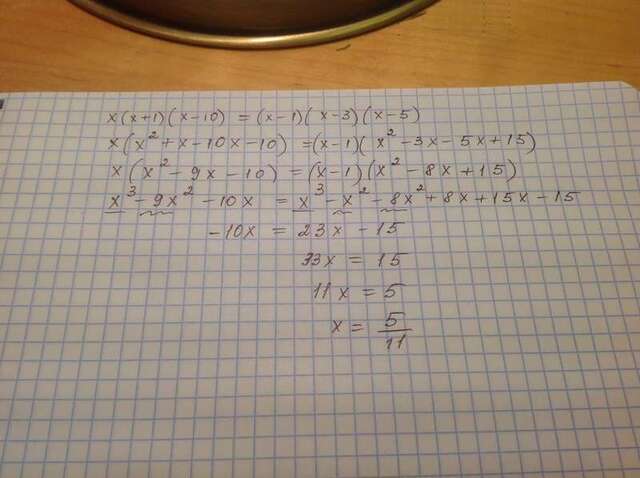 x(x+1)(x-10) = (x-1)(x-3)(x-5)
x(x²+x-10x-10) = (x-1)(x²-3x-5x+15)
x(x²-9x-10) = (x-1)(x²-8x+15)
x³-9x²-10x = x³-x²-8x²+8x+15x-15
-10x = 23x-15
33x = 15
11x = 5
x = 5/11